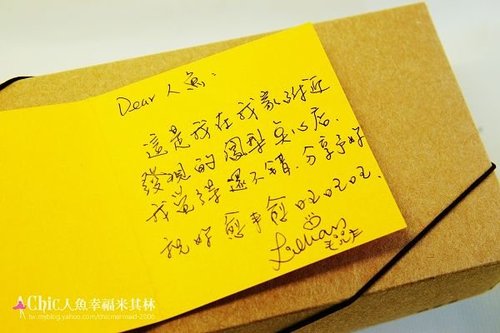 Dear 人魚,
這是我在我家附近
發現的鳳梨點心店.
我覺得還不錯.分享予妳
祝妳愈來愈旺旺旺.
Lillian
Chic人魚幸福米其林
tw.myblog.yahoo.com/chicmermaid-2006